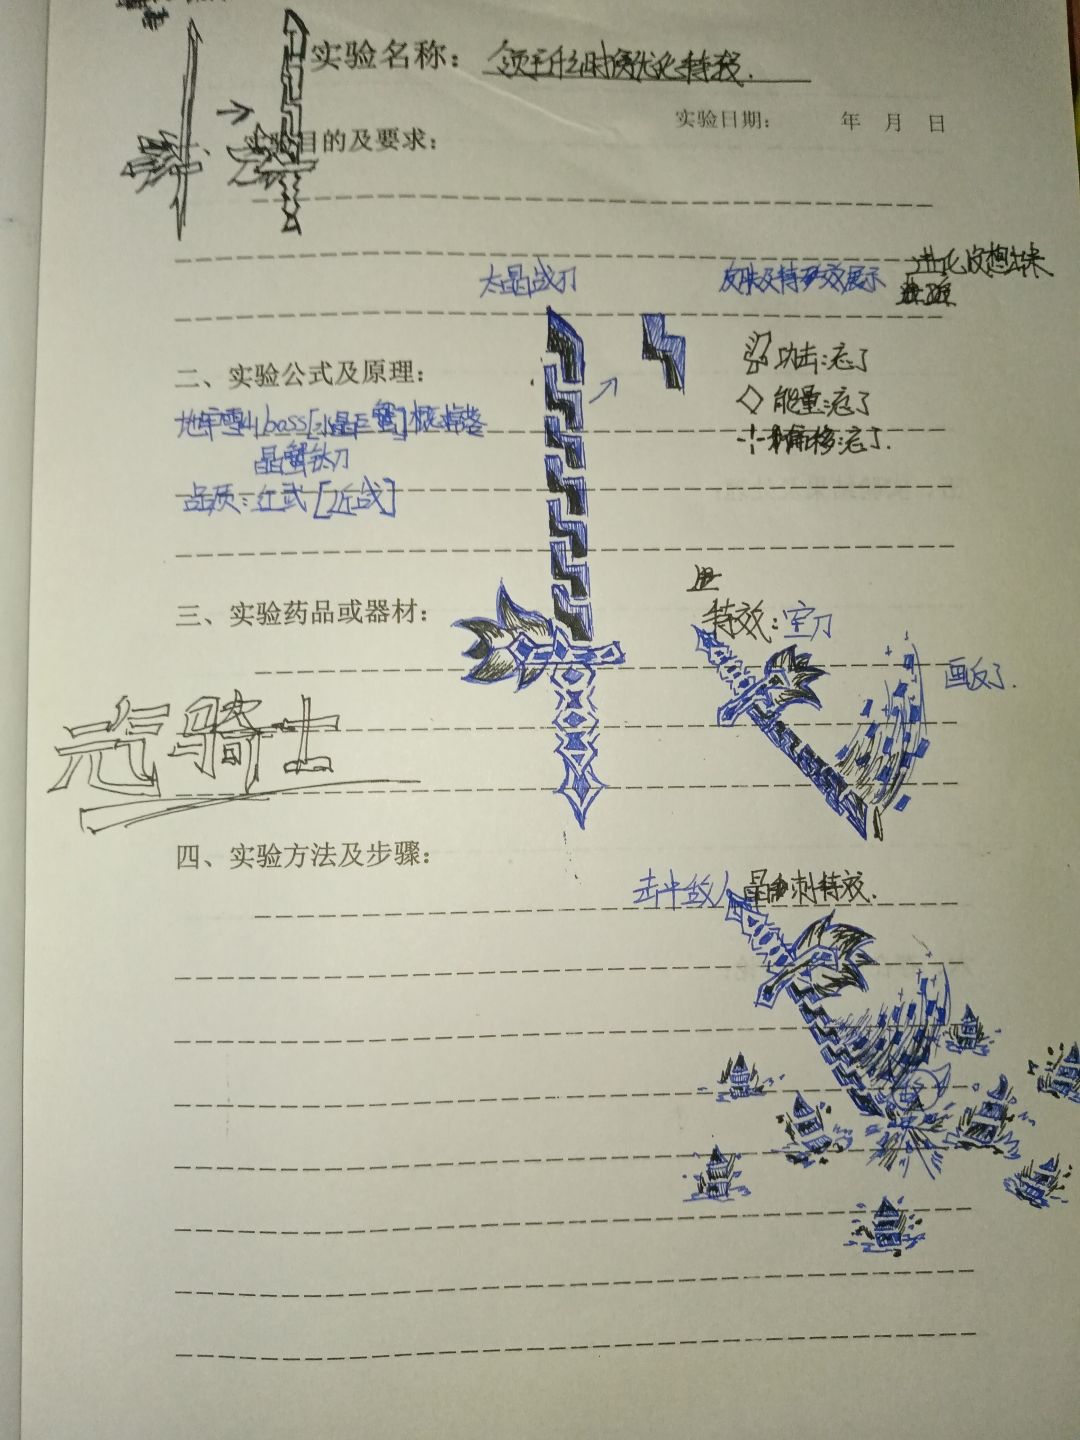 实验名称：领主什么时候优化特效.
实验日期： 年 月 日
实验目的及要求：
进化皮想出来
太晶战刀
皮肤及特效展示
二、实验公式及原理：
攻击:忘了
能量:忘了
偏移:忘了.
地牢雪山boss[水晶巨蟹]概率掉落
晶蟹太刀
品质:红武[近战]
三、实验药品或器材：
特效:空刀
画反了.
元气骑士
四、实验方法及步骤：
击中敌人 晶刺特效.